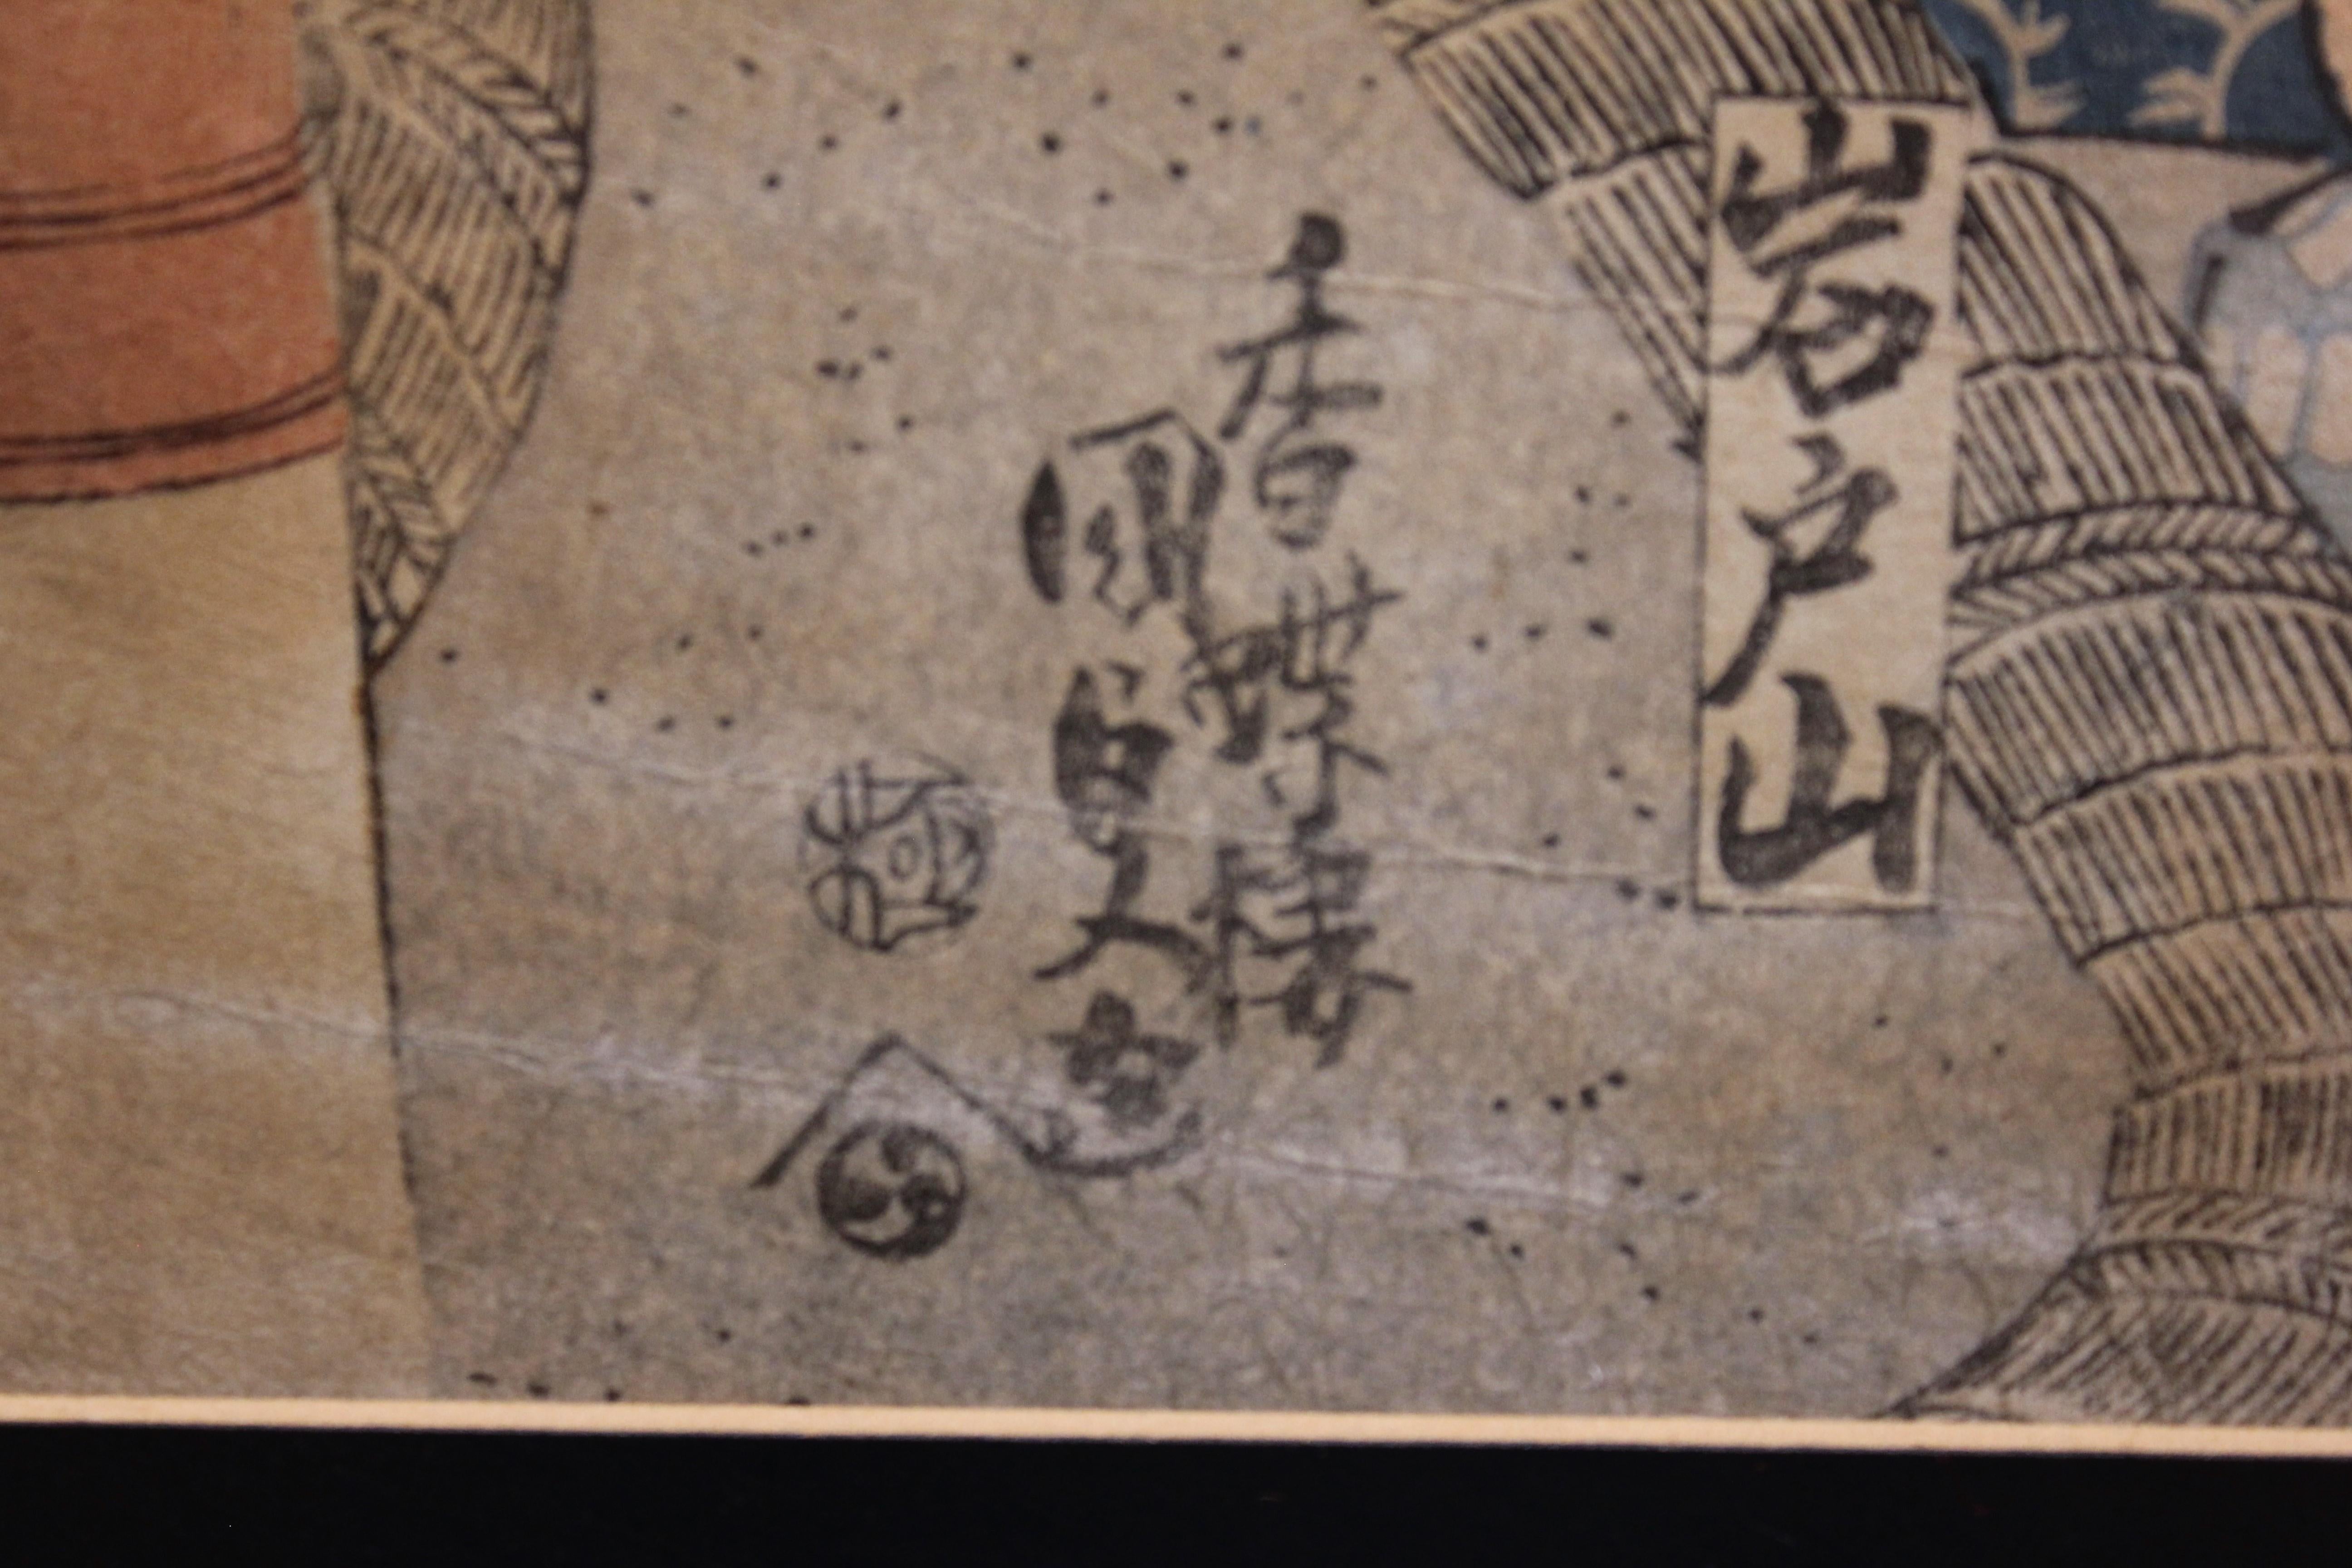 岩戸山
香蝶楼
国貞画